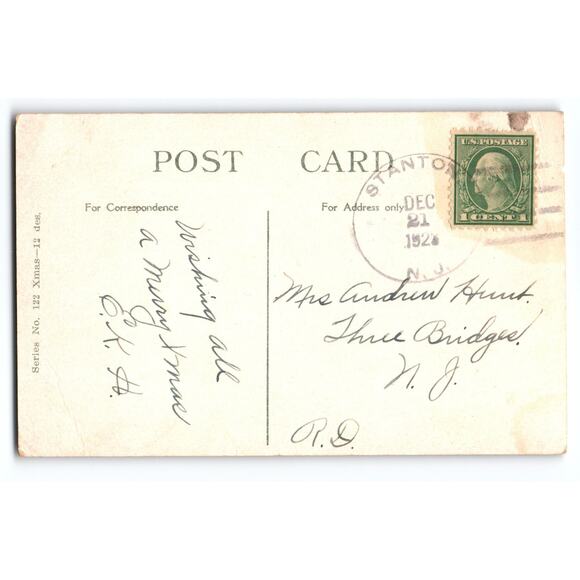 POST CARD
For Correspondence
For Address only
U.S. POSTAGE
1 CENT 1
STANTON
DEC
21
N. J.
Series No. 122 Xmas—12 des.
Wishing all
a Merry Xmas
Mrs Andrew Hunt.
Three Bridges.
N. J.
R.D.